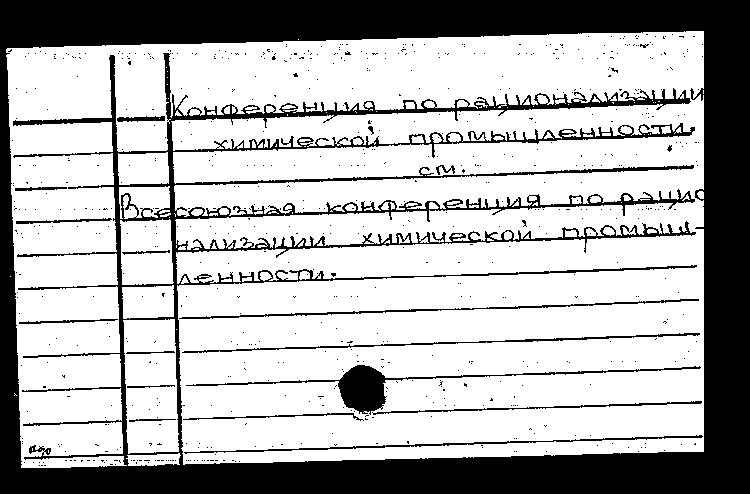 Конференция по рационализации
химической промышленности.
см.
Всесоюзная конференция по рацио
нализации химической промыш-
ленности.